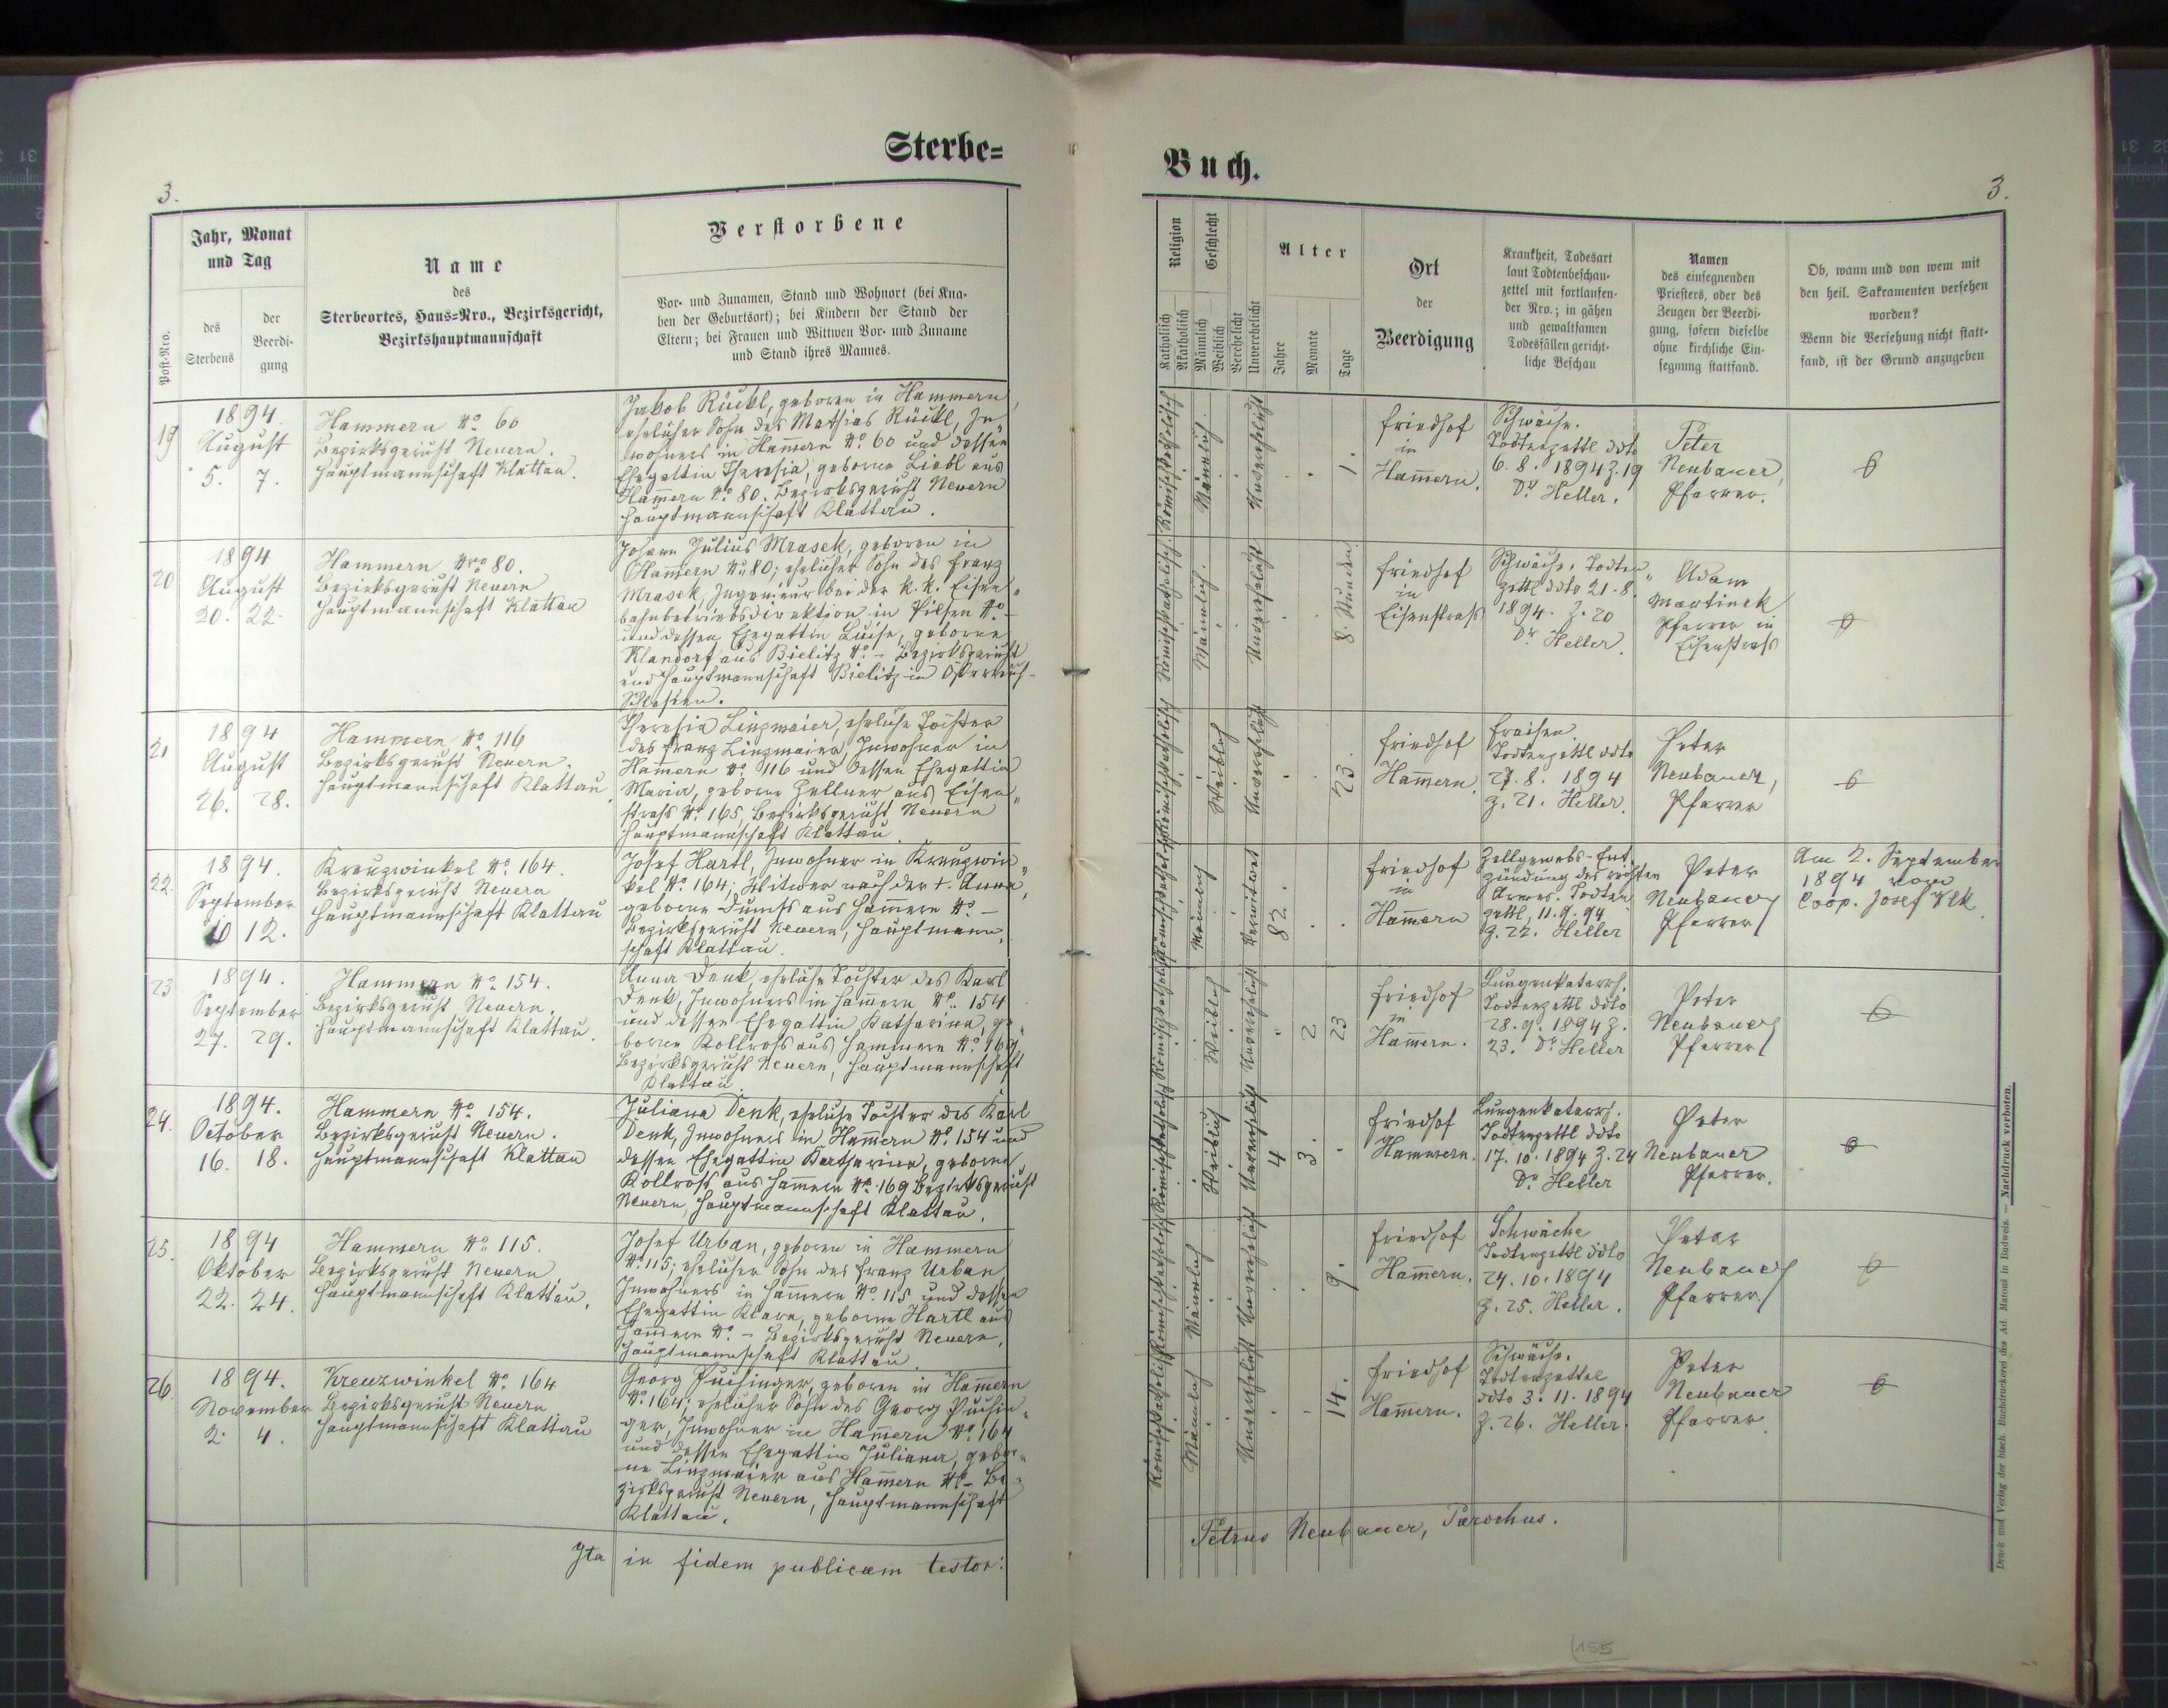 Sterbe=
3.
Jahr, Monat
und Tag
Post-Nro.
des
Sterbens
der
Beerdi-
gung
Name
des
Sterbeortes, Haus=Nro., Bezirksgericht,
Bezirkshauptmannschaft
Verstorbene
Vor- und Zunamen, Stand und Wohnort (bei Kna-
ben der Geburtsort); bei Kindern der Stand der
Eltern; bei Frauen und Wittwen Vor- und Zuname
und Stand ihres Mannes.
19
1894.
August
5. 7.
Hammern No. 60
Bezirksgericht Neuern.
Hauptmannschaft Klattau.
Jakob Rückl, geboren in Hammern,
ehelicher Sohn des Mathias Rückl, In-
wohners in Ham̄ern No. 60 und dessen
Ehegattin Theresia, geborne Liebl aus
Ham̄ern No. 80. Bezirksgericht Neuern
Hauptmannschaft Klattau.
20
1894
August
20. 22.
Hammern Nro 80.
Bezirksgericht Neuern
Hauptmannschaft Klattau
Johann Julius Mrasek, geboren in
Ham̄ern No. 80; ehelicher Sohn des Franz
Mrasek, Ingenieur bei der k. k. Eisen„
bahnbetriebsdirektion in Pilsen No. –
und dessen Ehegattin Luise, geborne
Klandorf aus Bielitz No. – Bezirksgericht
und Hauptmannschaft Bielitz in Österreich-
Schlesien.
21
1894
August
26. 28.
Hammern No. 116
Bezirksgericht Neuern.
Hauptmannschaft Klattau.
Theresia Linzmaier, eheliche Tochter
des Franz Linzmaier, Inwohner in
Ham̄ern No. 116 und dessen Ehegattin
Maria, geborne Zellner aus Eisen„
straß No. 165, Bezirksgericht Neuern
Hauptmannschaft Klattau.
22.
1894.
September
10 12.
Kreuzwinkel No. 164.
Bezirksgericht Neuern
Hauptmannschaft Klattau
Josef Hartl, Inwohner in Kreuzwin„
kel No. 164; Witwer nach der †. Anna,
geborne aus Ham̄ern No. –
Bezirksgericht Neuern, Hauptmann„
schaft Klattau.
23
1894.
September
27. 29.
Hammern No. 154.
Bezirksgericht Neuern.
Hauptmannschaft Klattau.
Anna Denk, eheliche Tochter des Karl
Denk, Inwohners in Ham̄ern No. 154
und dessen Ehegattin Katharina, ge„
borne Kollroß aus Hammern No. 169
Bezirksgericht Neuern, Hauptmannschaft
Klattau.
24.
1894.
October
16. 18.
Hammern No. 154.
Bezirksgericht Neuern.
Hauptmannschaft Klattau
Juliana Denk, eheliche Tochter des Karl
Denk, Inwohners in Ham̄ern No. 154 und
dessen Ehegattin Katharina, geborne
Kollroß aus Ham̄ern No. 169 Bezirksgericht
Neuern, Hauptmannschaft Klattau.
25.
1894
Oktober
22. 24.
Hammern No. 115.
Bezirksgericht Neuern
Hauptmannschaft Klattau.
Josef Urban, geboren in Hammern
No. 115; ehelicher Sohn des Franz Urban
Inwohners in Ham̄ern No. 115 und dessen
Ehegattin Klara, geborne Hartl aus
Ham̄ern No. – Bezirksgericht Neuern,
Hauptmannschaft Klattau.
26.
1894.
November
2. 4.
Kreuzwinkel No. 164
Bezirksgericht Neuern
Hauptmannschaft Klattau
Georg Puchinger, geboren in Ham̄ern
No. 164; ehelicher Sohn des Georg Puchin„
ger, Inwohner in Ham̄ern No. 164
und dessen Ehegattin Juliana, gebor„
ne Linzmaier aus Ham̄ern No – Be„
zirksgericht Neuern, Hauptmannschaft
Klattau.
Ita in fidem publicam testor:
Buch.
3.
Religion
Katholisch
Akatholisch
Geschlecht
Männlich
Weiblich
Verehelicht
Unverehelicht
Alter
Jahre
Monate
Tage
Ort
der
Beerdigung
Krankheit, Todesart
laut Todtenbeschau-
zettel mit fortlaufen-
der Nro.; in gähen
und gewaltsamen
Todesfällen gericht-
liche Beschau
Namen
des einsegnenden
Priesters, oder des
Zeugen der Beerdi-
gung, sofern dieselbe
ohne kirchliche Ein-
segnung stattfand.
Ob, wann und von wem mit
den heil. Sakramenten versehen
worden?
Wenn die Versehung nicht statt-
fand, ist der Grund anzugeben
Römischkatholisch
Männlich.
Unverehelicht
1.
Friedhof
in
Ham̄ern.
Schwäche.
Todtenzettl ddto
6. 8. 1894 Z. 19
Dr Heller.
Peter
Neubauer,
Pfarrer.
Römischkatholisch.
Männlich.
Unverehelicht
8. Stunden.
Friedhof
in
Eisenstrass
Schwäche. Todten„
zettl ddto 21. 8.
1894. Z. 20
Dr Heller.
Adam
Martinek
Pfarrer in
Eisenstraß
Römischkatholisch
Weiblich
Unverehelicht
23.
Friedhof
Ham̄ern.
Fraisen
Todtenzettl ddto
27. 8. 1894
Z. 21. Heller.
Peter
Neubauer,
Pfarrer
Römischkatholisch
Männlich
Verwitwet
82.
Friedhof
in
Ham̄ern
Zellgewebs-Ent
zündung des rechten
Armes. Todten
zettl, 11. 9. 94
Z. 22. Heller
Peter
Neubauer
Pfarrer
Am 2. September
1894 vom
Coop. Josef Vlk
Römischkatholisch
Weiblich
Unverehelicht
2 23
Friedhof
in
Ham̄ern.
Lungenkatarrh.
Todtenzettl ddto
28. 9. 1894 Z.
23. Dr Heller
Peter
Neubauer
Pfarrer
Römischkatholisch
Weiblich
Unverehelicht
4 3.
Friedhof
Hammern.
Lungenkatarrh.
Todtenzettl ddto
17. 10. 1894 Z. 24
Dr Heller
Peter
Neubauer
Pfarrer.
Römischkatholisch
Männlich
Unverehelicht
9.
Friedhof
Ham̄ern.
Schwäche
Todtenzettl ddto
24. 10. 1894
Z. 25. Heller.
Peter
Neubauer
Pfarrer
Römischkatholisch
Männlich
Unverehelicht
14.
Friedhof
Ham̄ern.
Schwäche.
Todtenzettel
ddto 3. 11. 1894
Z. 26. Heller.
Peter
Neubauer
Pfarrer
Petrus Neubauer, Parochus.
Druck und Verlag der bisch. Buchdruckerei des Ad. Maroni in Budweis. — Nachdruck verboten.
155